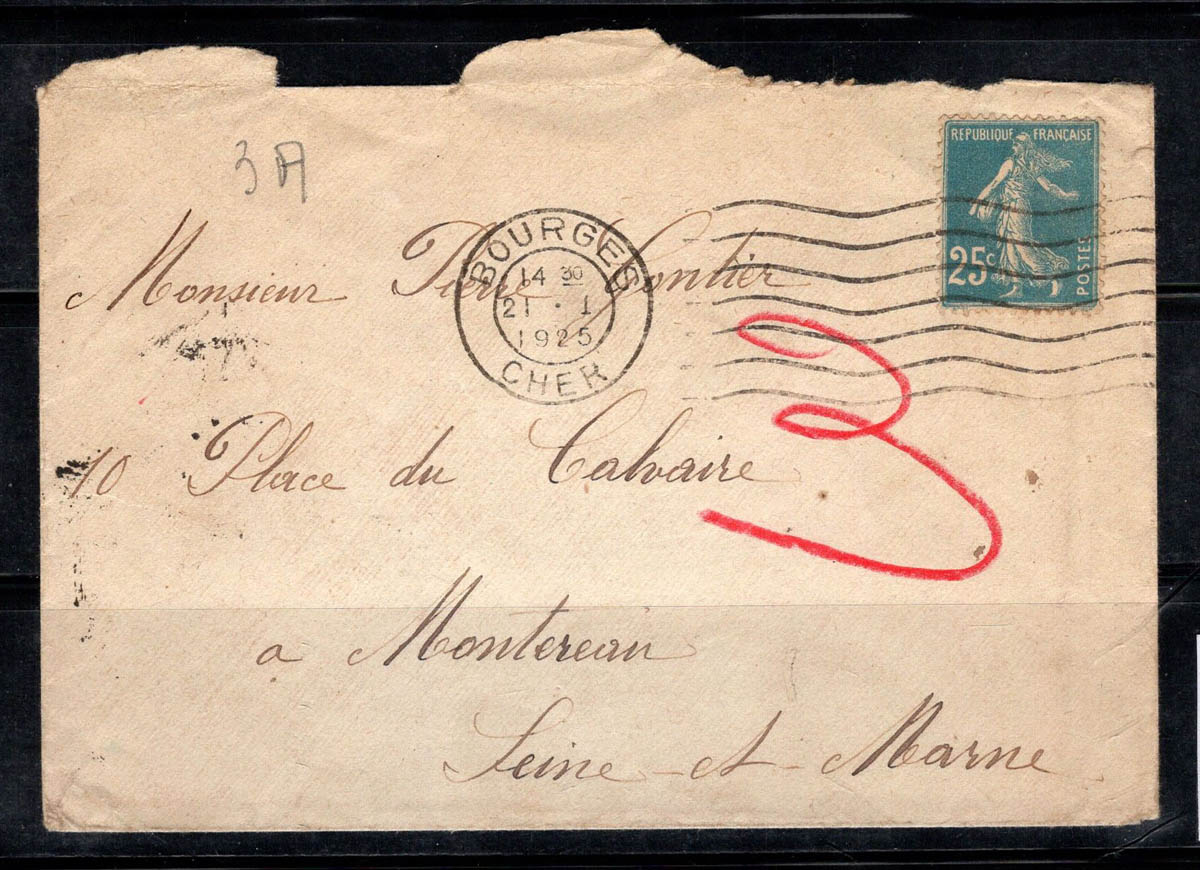 3A
REPUBLIQUE FRANÇAISE
25c
POSTES
BOURGES
14 30
21 · 1
1925
CHER
Monsieur Pierre
3
10 Place du Calvaire
a Montereau
Seine-et-Marne